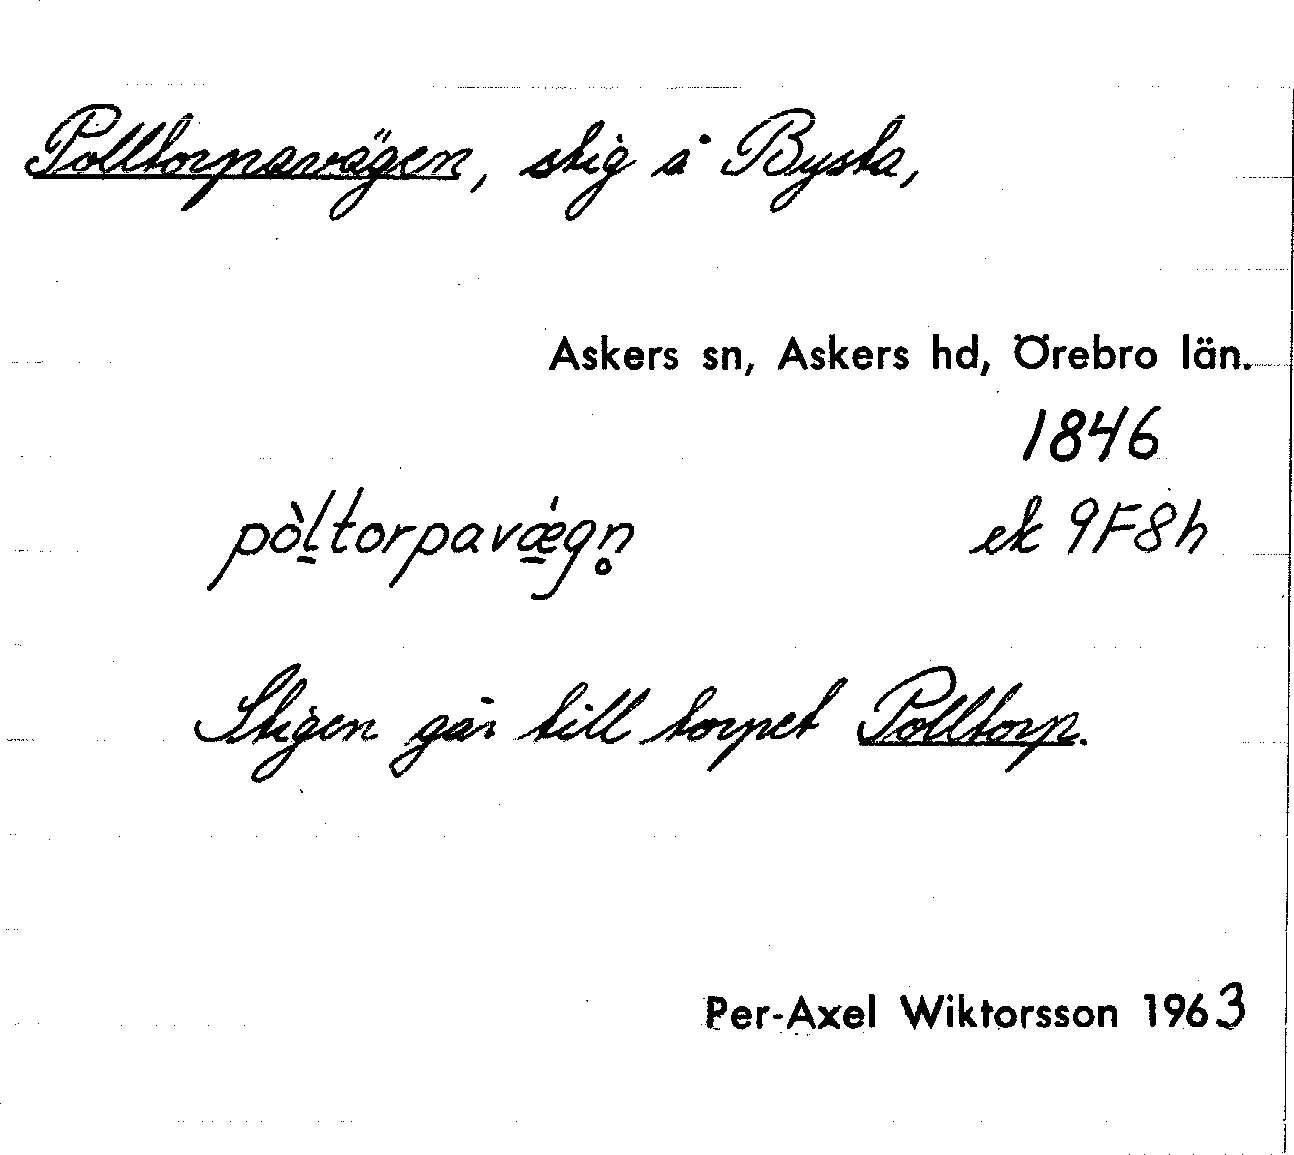 Polltorpavägen, stig å Bysta,
Askers sn, Askers hd, Örebro län.
1846
pòl̠torpavǽ̠gn̥
ek 9F8h
Stigen går till torpet Polltorp.
Per-Axel Wiktorsson 1963